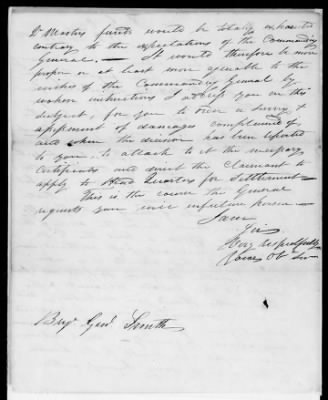 Qr Masters funds would be totally exhausted
contrary to the expectations of the Commanding
General. — It would therefore be more
proper or at least more agreeable to the
wishes of the Commanding General by
whose instructions I address you on this
subject, for you to order a survey &
appraisment of damages complained of
and when the decision has been reported
to you, to attach to it the necessary
Certificate and direct the Claimant to
apply to Head Quarters for Settlement —
This is the course the General
requests you will in future pursue —
I am
Sir
Very respectfully
Your Ob Ser
Brigr Genl Smith